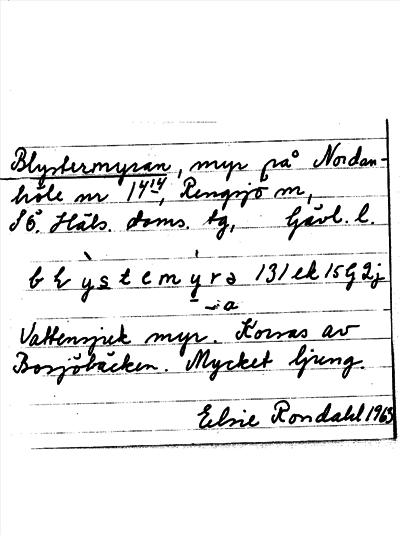 Blystermyran, myr på Nordan-
höle nr 14¹⁴, Rengsjö sn,
SÖ. Häls. doms. tg, Gävl. l.
b l y s t e m y r a 131 ek 15G 2j
a
Vattensjuk myr. Korsas av
Bosjöbäcken. Mycket ljung.
Elsie Rondahl 1963